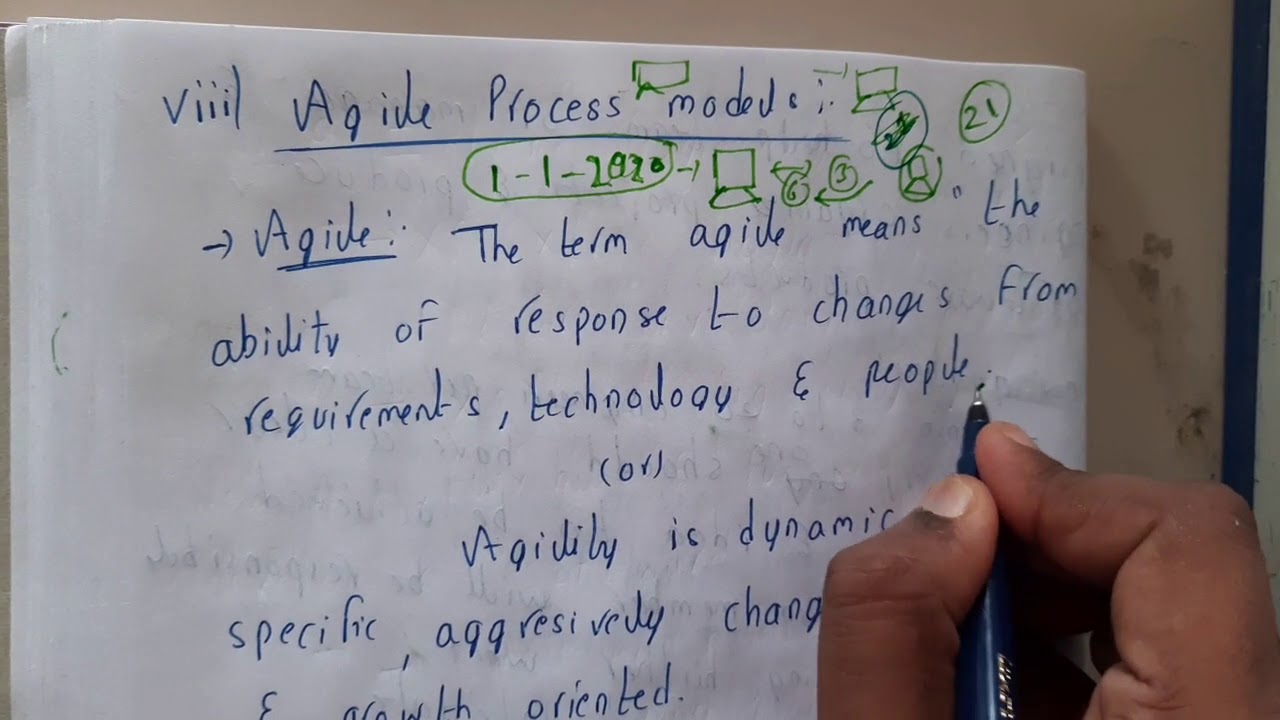 viii) Agile Process models :-
21
1-1-2020 → 6 3
→ Agile :- The term agile means "the
ability of response to changes from
requirements, technology & people.
(or)
Agility is dynamic
specific, aggresively chang
& growth oriented.